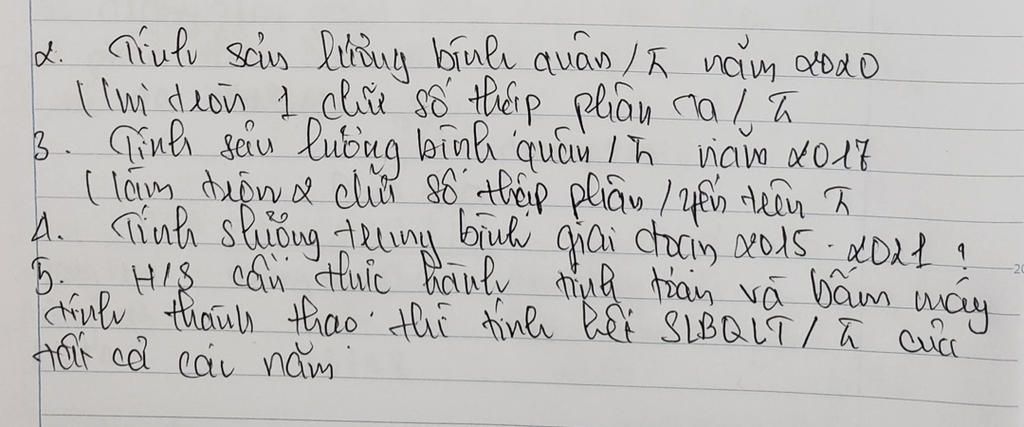 2. Tính sản lượng bình quân / ħ năm 2020
(làm tròn 1 chữ số thập phân / ħ
3. Tính sản lượng bình quân / ħ năm 2017
(làm tròn 2 chữ số thập phân / yến trên ħ
4. Tính slượng trung bình giai đoạn 2015 - 2021 !
5. H/S cần thực hành tính toán và bấm máy
tính thành thạo thì tính hết SLBQLT / ħ của
tất cả các năm